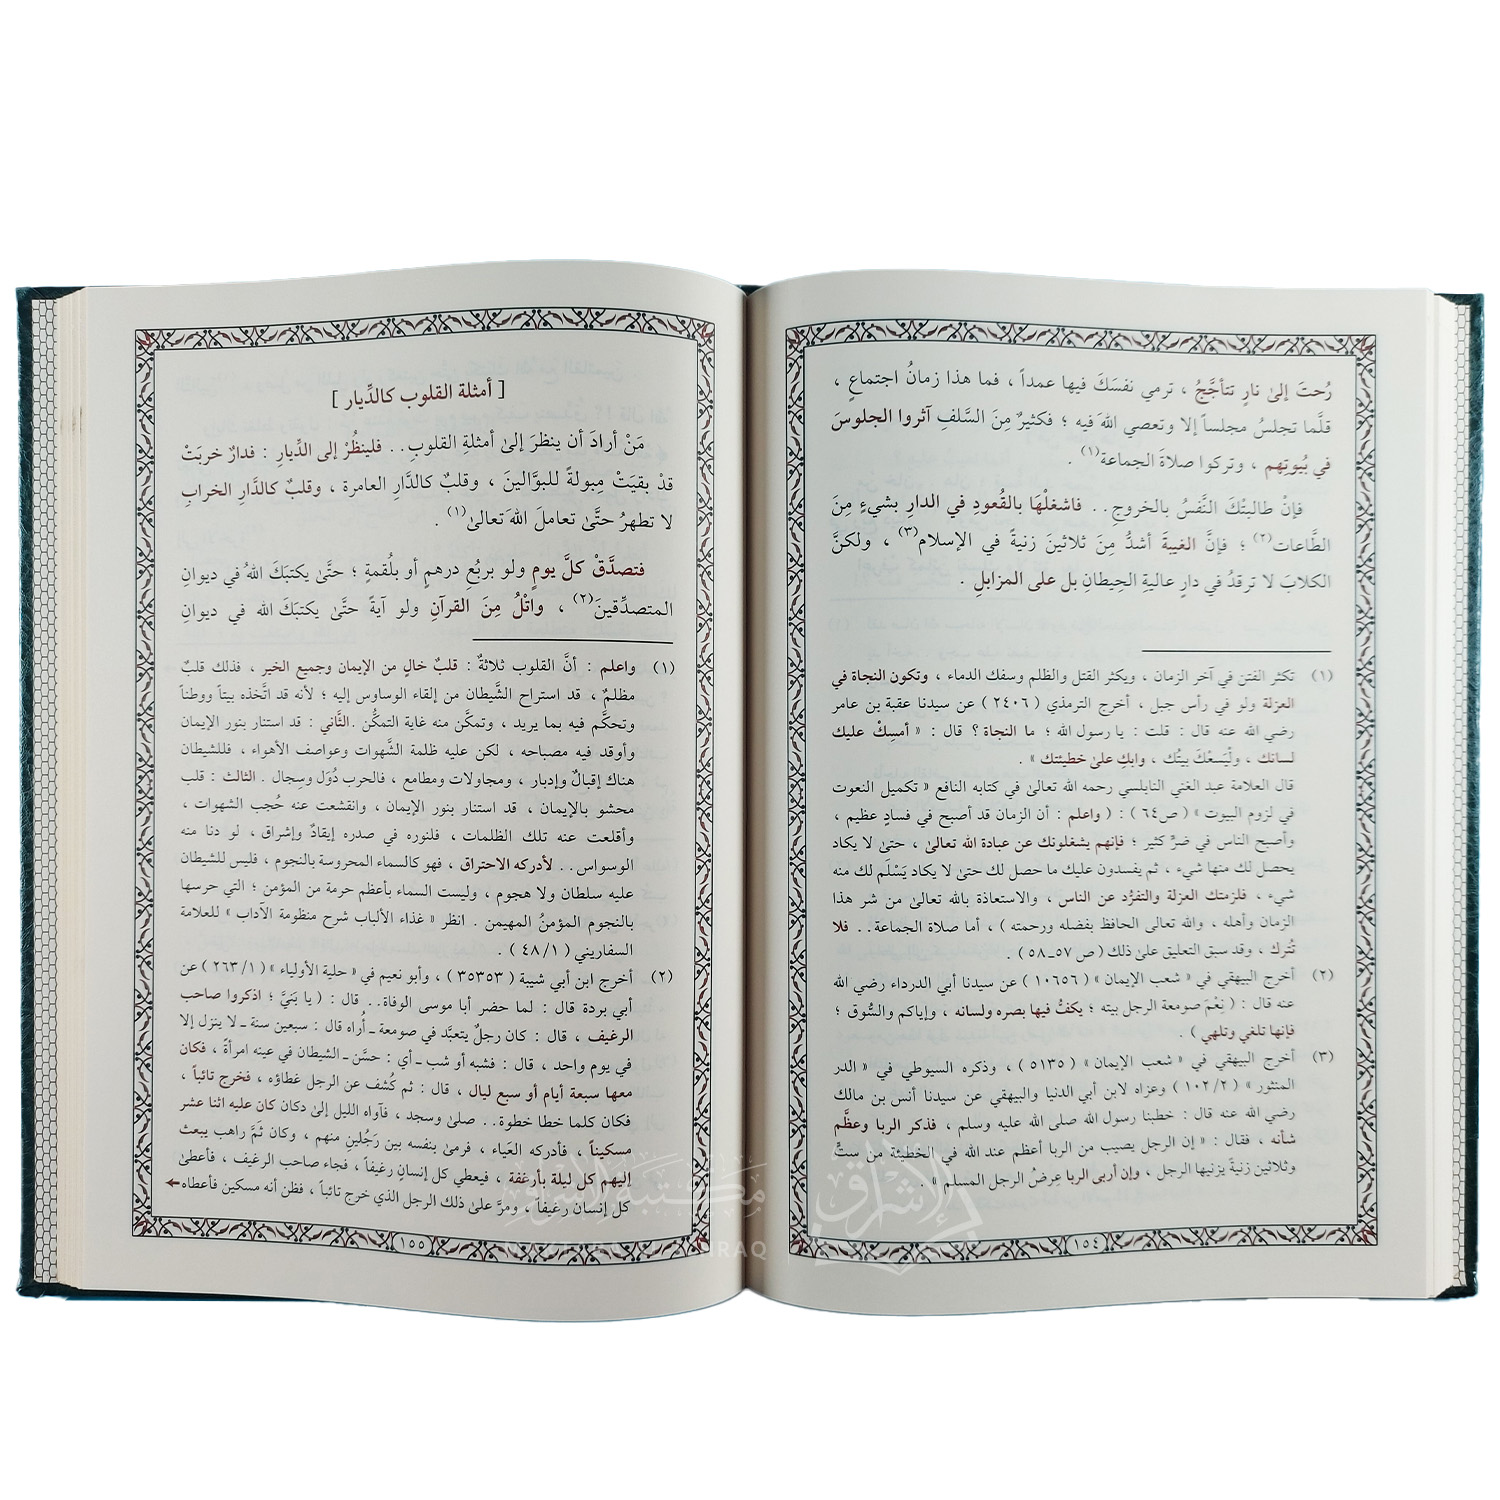 رُحتَ إلىٰ نارٍ تتأجَّجُ ، ترمي نفسَكَ فيها عمداً ، فما هذا زمانُ اجتماعٍ ،
قلَّما تجلسُ مجلساً إلا وتعصي اللهَ فيه ؛ فكثيرٌ مِنَ السَّلفِ آثروا الجلوسَ
في بُيوتِهم ، وتركوا صلاةَ الجماعة(١) .
فإنْ طالبتْكَ النَّفسُ بالخروجِ . . فاشغلْهَا بالقُعودِ في الدارِ بشيءٍ مِنَ
الطَّاعات(٢) ؛ فإنَّ الغيبةَ أشدُّ مِنَ ثلاثينَ زنيةً في الإسلام(٣) ، ولكنَّ
الكلابَ لا ترقدُ في دارٍ عاليةِ الحِيطانِ بل على المزابلِ .
(١) تكثر الفتن في آخر الزمان ، ويكثر القتل والظلم وسفك الدماء ، وتكون النجاة في
العزلة ولو في رأس جبل ، أخرج الترمذي ( ٢٤٠٦ ) عن سيدنا عقبة بن عامر
رضي الله عنه قال : قلت : يا رسول الله ؛ ما النجاة ؟ قال : « أمسِكْ عليك
لسانك ، ولْيَسعْكَ بيتُك ، وابكِ علىٰ خطيئتك » .
قال العلامة عبد الغني النابلسي رحمه الله تعالىٰ في كتابه النافع « تكميل النعوت
في لزوم البيوت » ( ص٦٤ ) : ( واعلم : أن الزمان قد أصبح في فسادٍ عظيم ،
وأصبح الناس في ضرٍّ كثير ؛ فإنهم يشغلونك عن عبادة الله تعالىٰ ، حتىٰ لا يكاد
يحصل لك منها شيء ، ثم يفسدون عليك ما حصل لك حتىٰ لا يكاد يَسْلَم لك منه
شيء ، فلزمتك العزلة والتفرُّد عن الناس ، والاستعاذة بالله تعالىٰ من شر هذا
الزمان وأهله ، والله تعالى الحافظ بفضله ورحمته ) ، أما صلاة الجماعة . . فلا
تُترك ، وقد سبق التعليق علىٰ ذلك ( ص ٥٧ــ٥٨ ) .
(٢) أخرج البيهقي في « شعب الإيمان » ( ١٠٦٥٦ ) عن سيدنا أبي الدرداء رضي الله
عنه قال : ( نِعْمَ صومعة الرجل بيته ؛ يكفُّ فيها بصره ولسانه ، وإياكم والسُّوق ؛
فإنها تلغي وتلهي ) .
(٣) أخرج البيهقي في « شعب الإيمان » ( ٥١٣٥ ) ، وذكره السيوطي في « الدر
المنثور » ( ١٠٢/٢ ) وعزاه لابن أبي الدنيا والبيهقي عن سيدنا أنس بن مالك
رضي الله عنه قال : خطبنا رسول الله صلى الله عليه وسلم ، فذكر الربا وعظَّم
شأنه ، فقال : « إن الرجل يصيب من الربا أعظم عند الله في الخطيئة من ستٍّ
وثلاثين زنيةً يزنيها الرجل ، وإن أربى الربا عِرضُ الرجل المسلم » .
١٥٤
[ أمثلة القلوب كالدِّيار ]
مَنْ أرادَ أن ينظرَ إلىٰ أمثلةِ القلوبِ . . فلينظُرْ إلى الدِّيارِ : فدارٌ خربَتْ
قدْ بقيَتْ مِبولةً للبوَّالينَ ، وقلبٌ كالدَّارِ العامرة ، وقلبٌ كالدَّارِ الخرابِ
لا تطهرُ حتَّىٰ تعاملَ اللهَ تعالىٰ(١) .
فتصدَّقْ كلَّ يومٍ ولو بربُعِ درهمٍ أو بلُقمةٍ ؛ حتَّىٰ يكتبَكَ اللهُ في ديوانِ
المتصدِّقينَ(٢) ، واتْلُ مِنَ القرآنِ ولو آيةً حتَّىٰ يكتبَكَ الله في ديوانِ
(١) واعلم : أنَّ القلوب ثلاثةٌ : قلبٌ خالٍ من الإيمان وجميع الخير ، فذلك قلبٌ
مظلمٌ ، قد استراح الشَّيطان من إلقاء الوساوس إليه ؛ لأنه قد اتَّخذه بيتاً ووطناً
وتحكَّم فيه بما يريد ، وتمكَّن منه غاية التمكُّن . الثَّاني : قد استنار بنور الإيمان
وأوقد فيه مصباحه ، لكن عليه ظلمة الشَّهوات وعواصف الأهواء ، فللشيطان
هناك إقبالٌ وإدبار ، ومجاولات ومطامع ، فالحرب دُوَل وسِجال . الثالث : قلب
محشو بالإيمان ، قد استنار بنور الإيمان ، وانقشعت عنه حُجب الشهوات ،
وأقلعت عنه تلك الظلمات ، فلنوره في صدره إيقادٌ وإشراق ، لو دنا منه
الوسواس . . لأدركه الاحتراق ، فهو كالسماء المحروسة بالنجوم ، فليس للشيطان
عليه سلطان ولا هجوم ، وليست السماء بأعظم حرمة من المؤمن ؛ التي حرسها
بالنجوم المؤمنُ المهيمن . انظر « غذاء الألباب شرح منظومة الآداب » للعلامة
السفاريني ( ٤٨/١ ) .
(٢) أخرج ابن أبي شيبة ( ٣٥٣٥٣ ) ، وأبو نعيم في « حلية الأولياء » ( ٢٦٣/١ ) عن
أبي بردة قال : لما حضر أبا موسى الوفاة . . قال : ( يا بَنيَّ ؛ اذكروا صاحب
الرغيف ، قال : كان رجلٌ يتعبَّد في صومعة ــ أُراه قال : سبعين سنة ــ لا ينزل إلا
في يوم واحد ، قال : فشبه أو شب ــ أي : حسَّن ــ الشيطان في عينه امرأةً ، فكان
معها سبعة أيام أو سبع ليال ، قال : ثم كُشف عن الرجل غطاؤه ، فخرج تائباً ،
فكان كلما خطا خطوة . . صلىٰ وسجد ، فآواه الليل إلىٰ دكان كان عليه اثنا عشر
مسكيناً ، فأدركه العَياء ، فرمىٰ بنفسه بين رَجُلين منهم ، وكان ثَمَّ راهب يبعث
إليهم كل ليلة بأرغفة ، فيعطي كل إنسانٍ رغيفاً ، فجاء صاحب الرغيف ، فأعطىٰ
كل إنسان رغيفاً ، ومرَّ علىٰ ذلك الرجل الذي خرج تائباً ، فظن أنه مسكين فأعطاه
١٥٥
مكتبة الإشراق
الإشراق